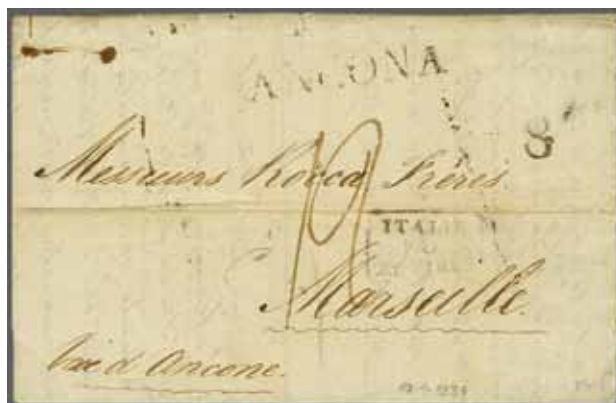 ANCONA
8
Messieurs Rocca Frères
19
ITALIE
Marseille.
Voie d'Ancone.